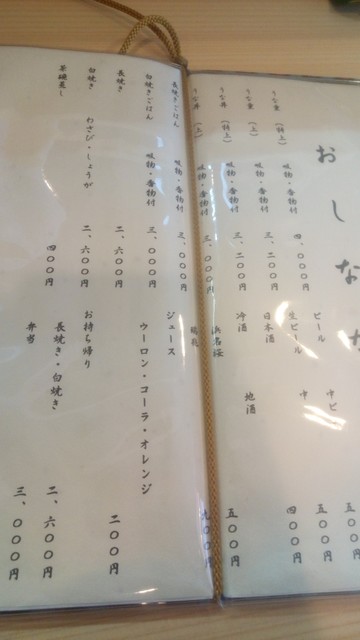 おしながき
うな重 (特上) 吸物・香物付 四、〇〇〇円
うな重 (上) 吸物・香物付 三、二〇〇円
うな丼 (特上) 吸物・香物付 三、二〇〇円
うな丼 (上) 吸物・香物付 三、〇〇〇円
長焼きごはん 吸物・香物付 三、〇〇〇円
白焼きごはん 吸物・香物付 三、〇〇〇円
長焼き 二、六〇〇円
白焼き わさび・しょうが 二、六〇〇円
茶碗蒸し 四〇〇円
ビール 中ビン 五〇〇円
生ビール 中 五〇〇円
日本酒 四〇〇円
冷酒 地酒 五〇〇円
ジュース ウーロン・コーラ・オレンジ 二〇〇円
お持ち帰り
長焼き・白焼き 二、六〇〇円
弁当 三、〇〇〇円